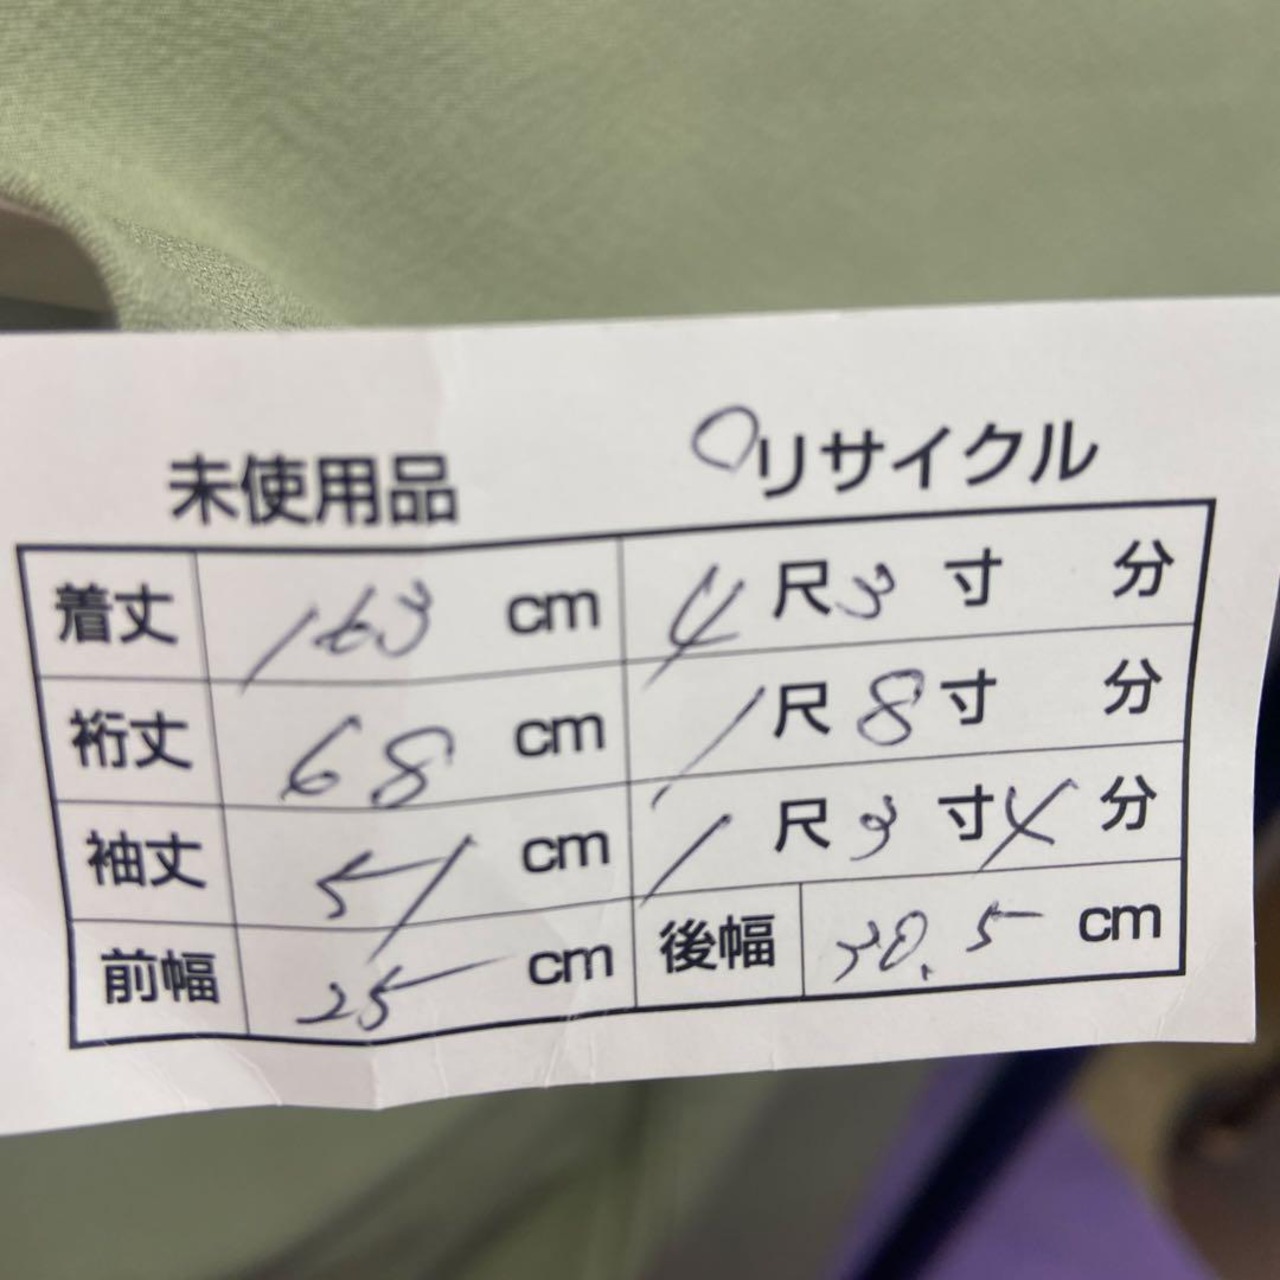 未使用品 ○リサイクル
着丈 163 cm 4尺3寸 分
裄丈 68 cm 1尺8寸 分
袖丈 51 cm 1尺3寸4分
前幅 25 cm 後幅 30.5 cm